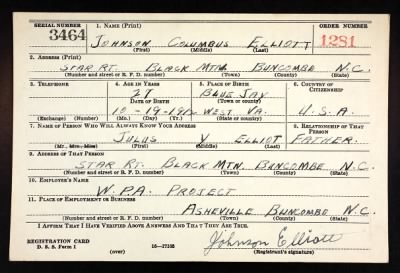 SERIAL NUMBER 1. NAME (Print) ORDER NUMBER
3464 JOHNSON COLUMBUS ELLIOTT 1281
(First) (Middle) (Last)
2. ADDRESS (Print)
STAR RT. BLACK MTN. BUNCOMBE N.C.
(Number and street or R. F. D. number) (Town) (County) (State)
3. TELEPHONE 4. AGE IN YEARS 5. PLACE OF BIRTH 6. COUNTRY OF CITIZENSHIP
27 BLUE JAY
DATE OF BIRTH (Town or county)
10-19-19 WEST VA. U.S.A.
(Exchange) (Number) (Mo.) (Day) (Yr.) (State or country)
7. NAME OF PERSON WHO WILL ALWAYS KNOW YOUR ADDRESS 8. RELATIONSHIP OF THAT PERSON
V ELLIOT FATHER.
(Mr., Mrs., Miss) (First) (Middle) (Last)
9. ADDRESS OF THAT PERSON
STAR RT. BLACK MTN. BUNCOMBE N.C.
(Number and street or R. F. D. number) (Town) (County) (State)
10. EMPLOYER'S NAME
W.P.A. PROJECT
11. PLACE OF EMPLOYMENT OR BUSINESS
ASHEVILLE BUNCOMBE N.C.
(Number and street or R. F. D. number) (Town) (County) (State)
I AFFIRM THAT I HAVE VERIFIED ABOVE ANSWERS AND THAT THEY ARE TRUE.
Johnson Elliott
REGISTRATION CARD
D. S. S. Form 1 (over) 16-17105 (Registrant's signature)